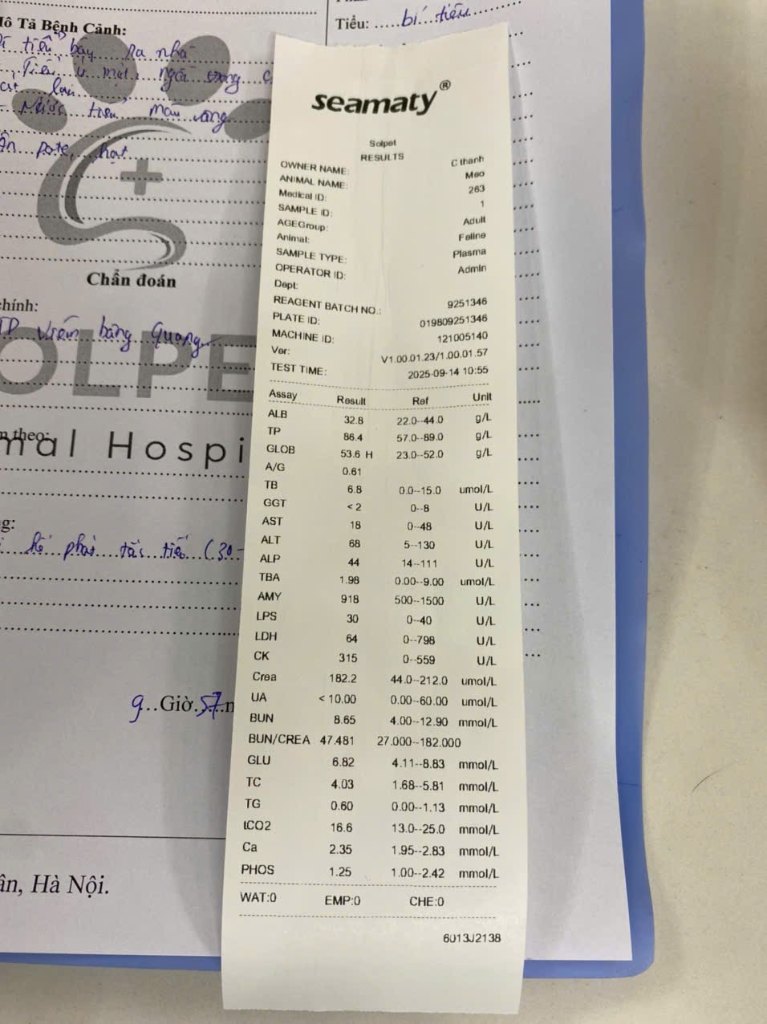 Mô Tả Bệnh Cảnh:
tiểu bậy ra nhà
Tiểu
màu vàng
pate, hạt
Tiểu: bí tiểu
Chẩn đoán
chính:
viêm bàng quang
n theo:
OLPE
mal Hospi
g:
(30-
9 Giờ 57
ân, Hà Nội.
seamaty®
Solpet
RESULTS
OWNER NAME: C thanh
ANIMAL NAME: Meo
Medical ID: 263
SAMPLE ID: 1
AGEGroup: Adult
Animal: Feline
SAMPLE TYPE: Plasma
OPERATOR ID: Admin
Dept:
REAGENT BATCH NO.: 9251346
PLATE ID: 019809251346
MACHINE ID: 121005140
Ver: V1.00.01.23/1.00.01.57
TEST TIME: 2025-09-14 10:55
Assay Result Ref Unit
ALB 32.8 22.0--44.0 g/L
TP 86.4 57.0--89.0 g/L
GLOB 53.6 H 23.0--52.0 g/L
A/G 0.61
TB 6.8 0.0--15.0 umol/L
GGT <2 0--8 U/L
AST 18 0--48 U/L
ALT 68 5--130 U/L
ALP 44 14--111 U/L
TBA 1.98 0.00--9.00 umol/L
AMY 918 500--1500 U/L
LPS 30 0--40 U/L
LDH 64 0--798 U/L
CK 315 0--559 U/L
Crea 182.2 44.0--212.0 umol/L
UA <10.00 0.00--60.00 umol/L
BUN 8.65 4.00--12.90 mmol/L
BUN/CREA 47.481 27.000--182.000
GLU 6.82 4.11--8.83 mmol/L
TC 4.03 1.68--5.81 mmol/L
TG 0.60 0.00--1.13 mmol/L
tCO2 16.6 13.0--25.0 mmol/L
Ca 2.35 1.95--2.83 mmol/L
PHOS 1.25 1.00--2.42 mmol/L
WAT:0 EMP:0 CHE:0
6013J2138